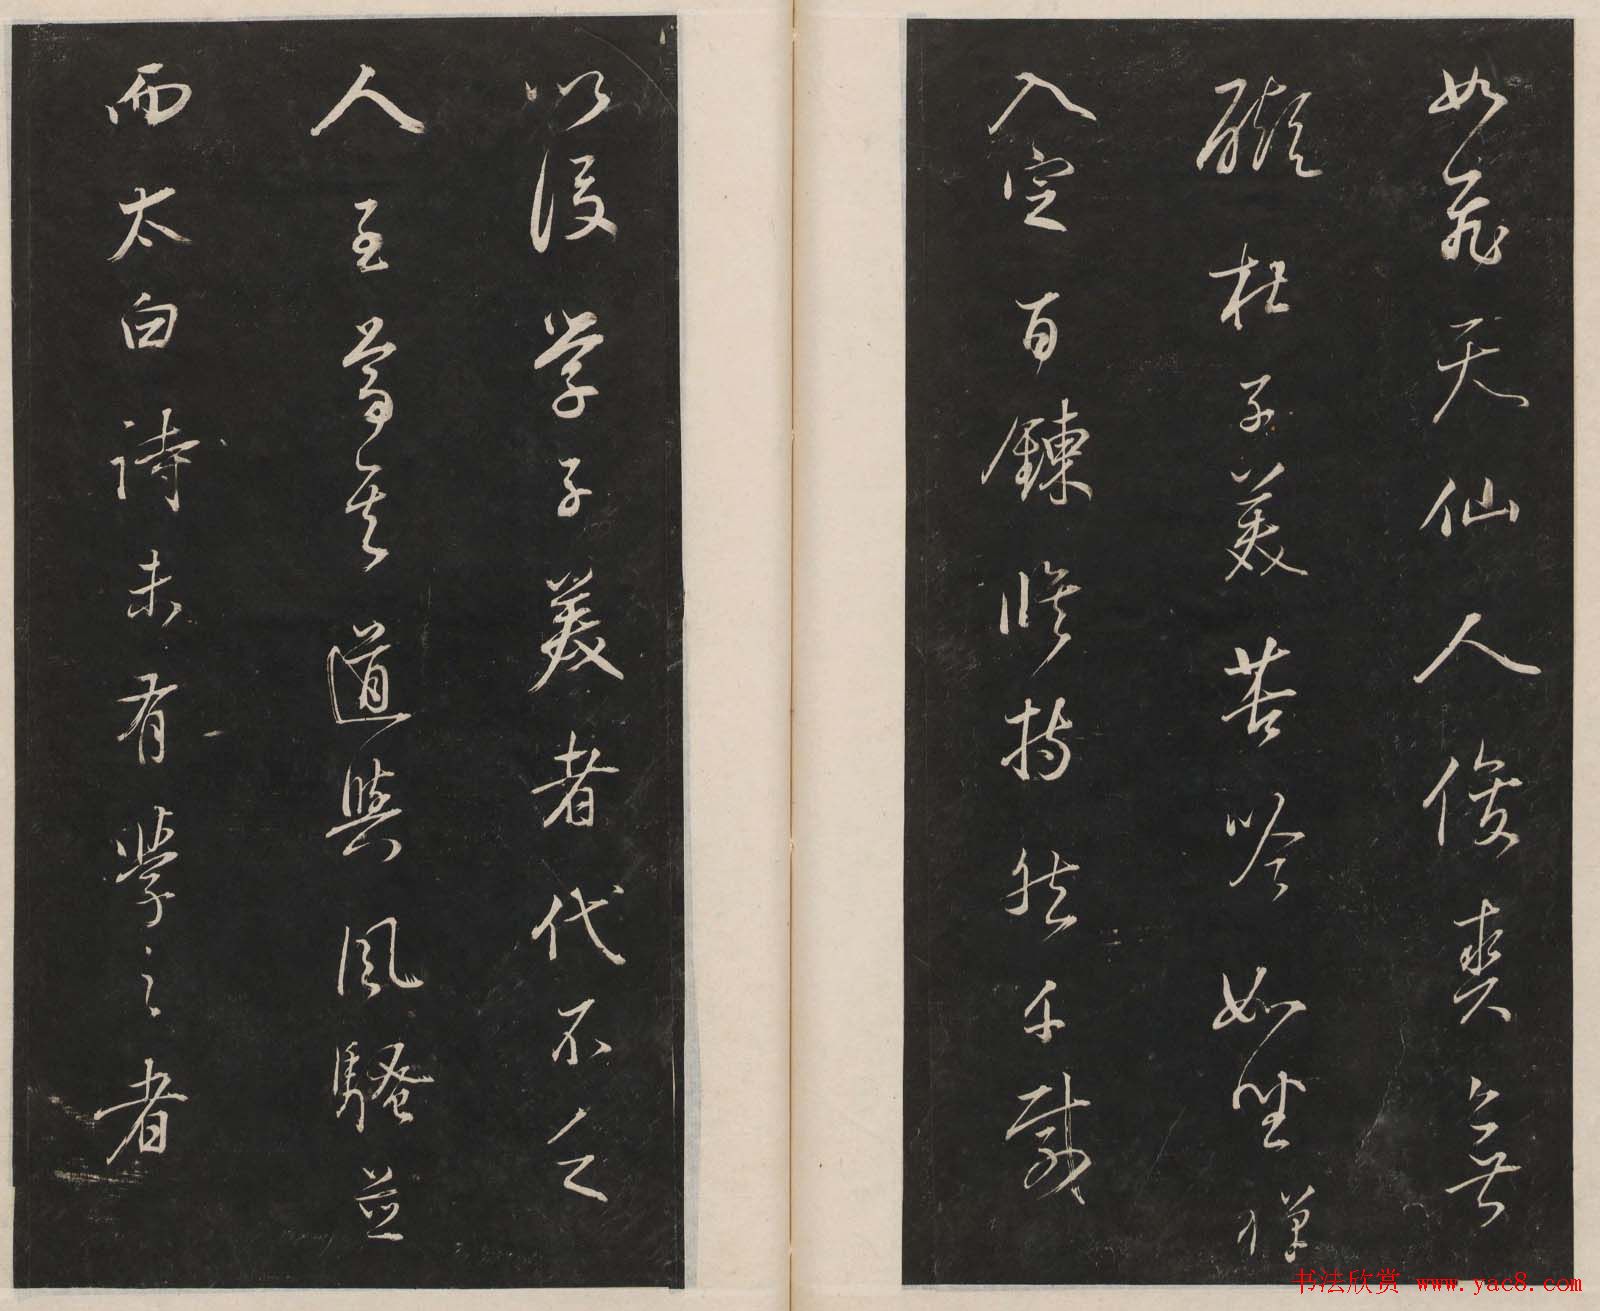 如飛天仙人俊爽無
礙杜子美苦吟如坐禪
入定百鍊脩持然千載
以後學子美者代不乏
人至尊其道與風騷並
而太白詩未有學之者
书法欣赏 www.yac8.com